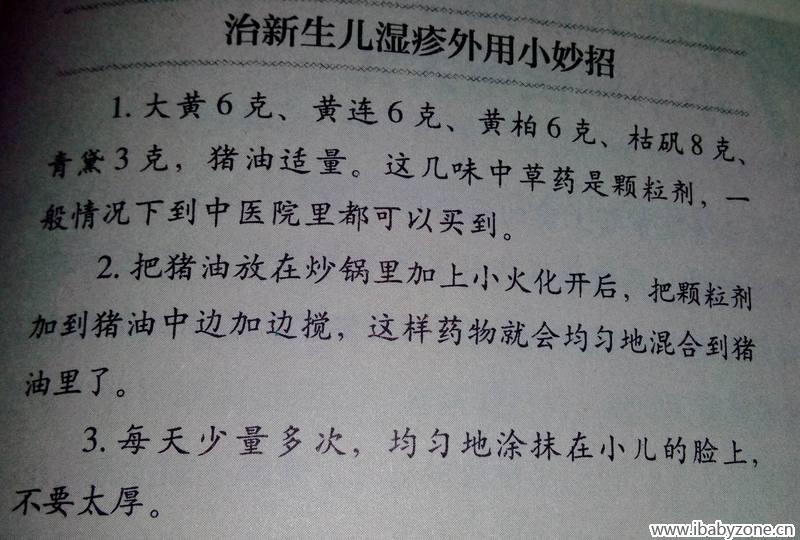 治新生儿湿疹外用小妙招
1. 大黄6克、黄连6克、黄柏6克、枯矾8克、
青黛3克，猪油适量。这几味中草药是颗粒剂，一
般情况下到中医院里都可以买到。
2. 把猪油放在炒锅里加上小火化开后，把颗粒剂
加到猪油中边加边搅，这样药物就会均匀地混合到猪
油里了。
3. 每天少量多次，均匀地涂抹在小儿的脸上，
不要太厚。
www.ibabyzone.cn